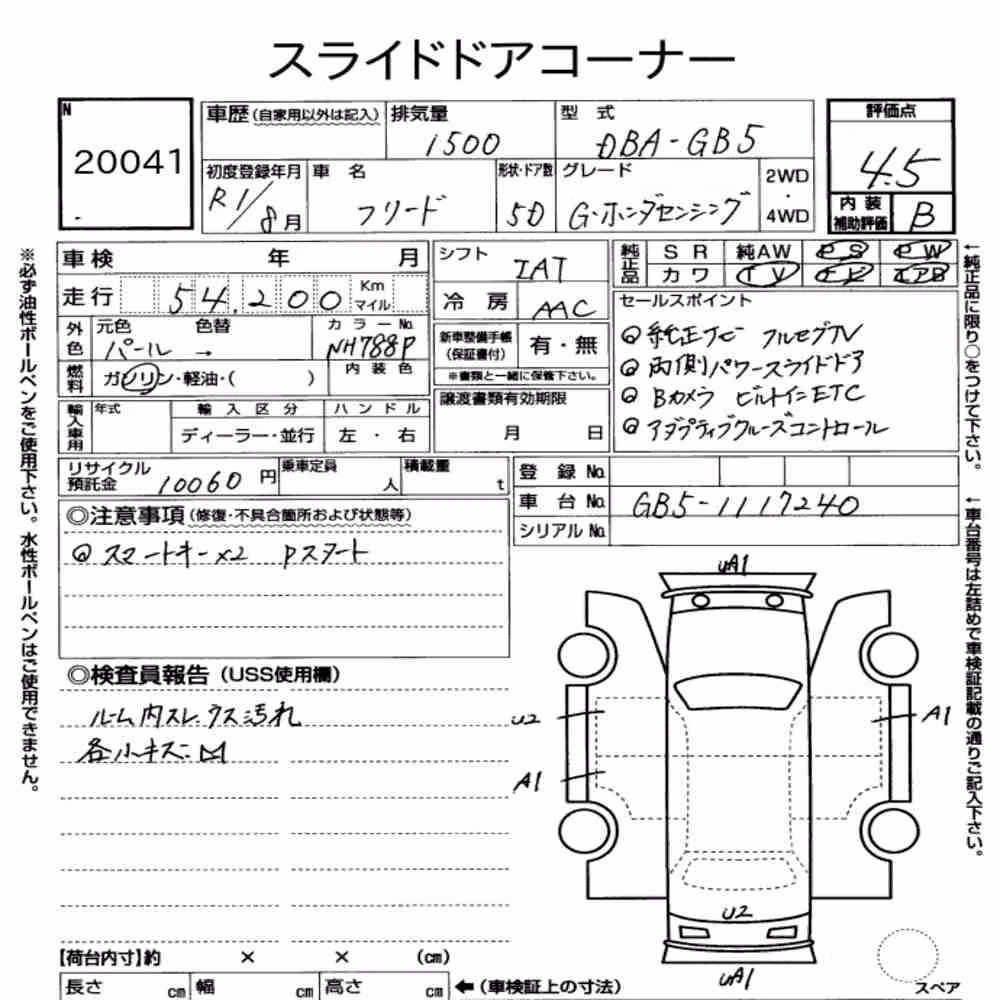 スライドドアコーナー
N
20041
車歴(自家用以外は記入)
排気量
1500
型 式
DBA-GB5
評価点
4.5
初度登録年月
R1/8月
車 名
フリード
形状・ドア数
5D
グレード
G・ホンダセンシング
2WD
・
4WD
内装
補助評価
B
車検 年 月
走行 54,200 Km
マイル
シフト
IAT
冷房
AAC
純正品
SR 純AW PS PW
カワ TV ナビ エアB
外色
元色 色替
パール →
カラーNo.
NH788P
燃料
ガソリン・軽油・( )
内装色
新車整備手帳
(保証書付)
有・無
※書類と一緒に保管下さい。
セールスポイント
◎純正ナビ フルセグTV
◎両側パワースライドドア
◎Bカメラ ビルトインETC
◎アダプティブクルーズコントロール
輸入車用
年式
輸入区分
ディーラー・並行
ハンドル
左・右
譲渡書類有効期限
月 日
リサイクル
預託金 10060 円
乗車定員
人
積載量
t
登録No.
車台No. GB5-1117240
シリアルNo.
◎注意事項(修復・不具合箇所および状態等)
◎スマートキー×2 Pスタート
◎検査員報告(USS使用欄)
ルーム内スレ ウス汚れ
各小キズ
UA1
U2
A1
A1
U2
UA1
【荷台内寸】約 × × (cm)
長さ cm 幅 cm 高さ cm ←(車検証上の寸法)
スペア
※必ず油性ボールペンをご使用下さい。水性ボールペンはご使用できません。
←純正品に限り○をつけて下さい。
←車台番号は左詰めで車検証記載の通りご記入下さい。